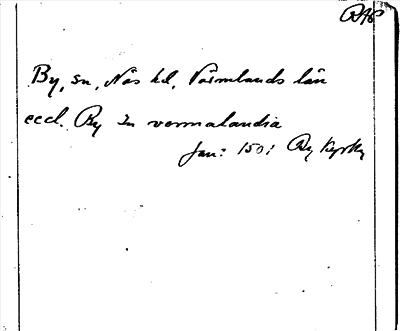 RAP
By, sn, Näs hd, Värmlands län
eccl. By In vermalandia
Jan: 150: By Kyrky